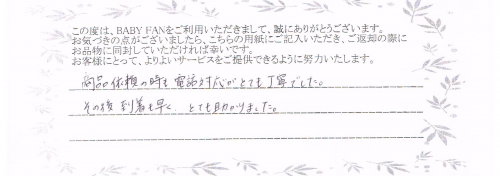 この度は、BABY FANをご利用いただきまして、誠にありがとうございます。
お気づきの点がございましたら、こちらの用紙にご記入いただき、ご返却の際に
お品物に同封していただければ幸いです。
お客様にとって、よりよいサービスをご提供できるように努力いたします。
商品依頼の時も電話対応がとても丁寧でした。
その後到着も早く、とても助かりました。